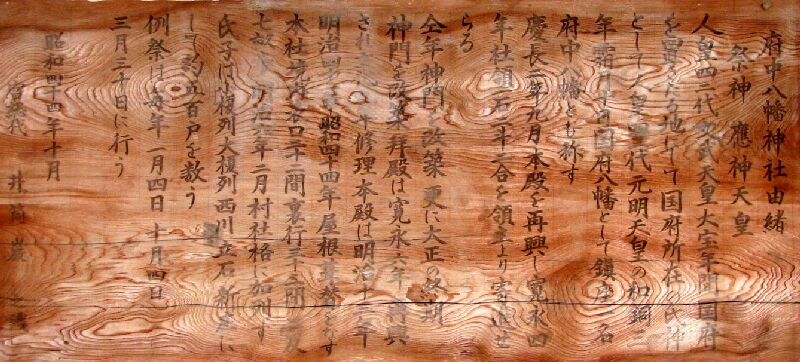 府中八幡神社由緒
祭神 應神天皇
人皇四二代文武天皇大宝年間国府
を置きたる地にして国府所在の氏神
として人皇四三代元明天皇の和銅三
年霜月十日国府八幡として鎮座一名
府中八幡とも称す
慶長二年九月本殿を再興し寛永四
年社領一石二斗二合を領主より寄進せ
らる
全年神門を改築 更に大正の祭期
神門を改築拝殿は寛永六年再興
され 修理本殿は明治十三年
明治四十 昭和四十四年屋根葺替をす
本社 間口二間裏行三間
故 明治六年二月村社格に加列す
氏子は複列大複列西川立石新居に
して約五百戸を数う
例祭は毎年一月四日 十月四日
三月三十日に行う
昭和四十四年十月
総代 井筒巌